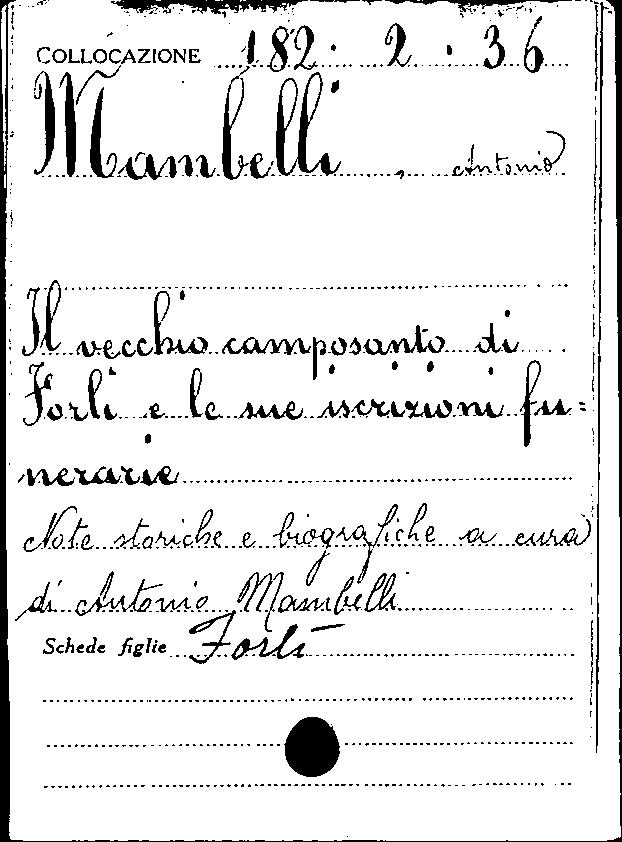 COLLOCAZIONE 182. 2. 36
Mambelli, Antonio
Il vecchio camposanto di
Forlì e le sue iscrizioni fu=
nerarie
Note storiche e biografiche a cura
di Antonio Mambelli
Schede figlie Forlì